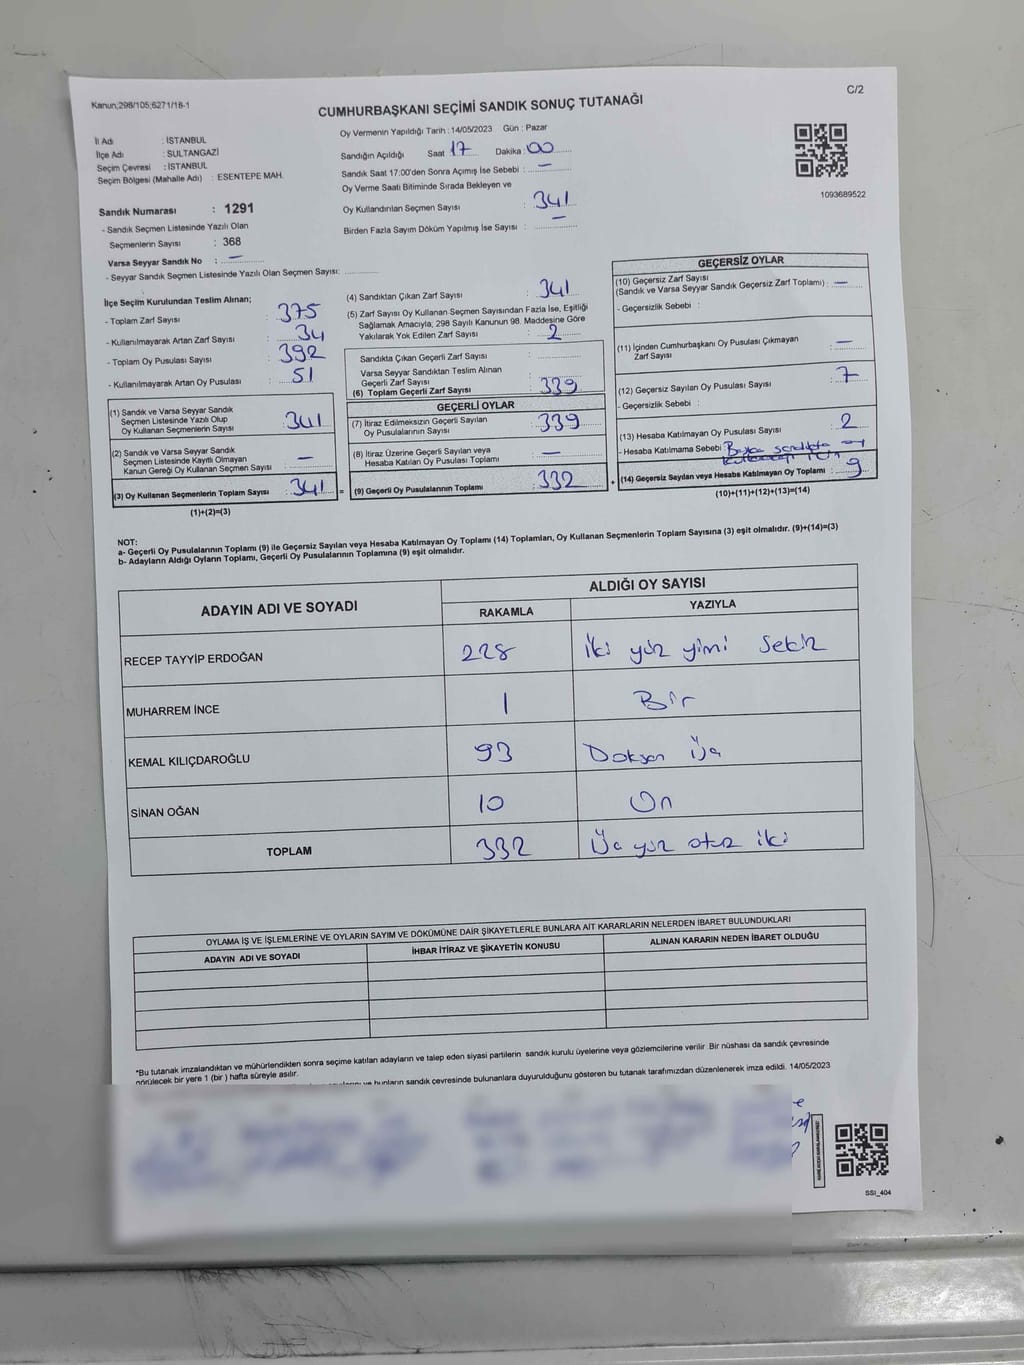 Kanun;298/105;6271/18-1
C/2
CUMHURBAŞKANI SEÇİMİ SANDIK SONUÇ TUTANAĞI
İl Adı : İSTANBUL
İlçe Adı : SULTANGAZİ
Seçim Çevresi : İSTANBUL
Seçim Bölgesi (Mahalle Adı) : ESENTEPE MAH.
Oy Vermenin Yapıldığı Tarih : 14/05/2023 Gün : Pazar
Sandığın Açıldığı Saat 17 Dakika : 00
Sandık Saat 17:00'den Sonra Açımış İse Sebebi : —
Oy Verme Saati Bitiminde Sırada Bekleyen ve
Oy Kullandırılan Seçmen Sayısı : 341
Birden Fazla Sayım Döküm Yapılmış İse Sayısı : —
1093689522
Sandık Numarası : 1291
- Sandık Seçmen Listesinde Yazılı Olan
Seçmenlerin Sayısı : 368
Varsa Seyyar Sandık No : —
- Seyyar Sandık Seçmen Listesinde Yazılı Olan Seçmen Sayısı:
İlçe Seçim Kurulundan Teslim Alınan;
- Toplam Zarf Sayısı : 375
- Kullanılmayarak Artan Zarf Sayısı : 34
- Toplam Oy Pusulası Sayısı : 392
- Kullanılmayarak Artan Oy Pusulası : 51
(1) Sandık ve Varsa Seyyar Sandık
Seçmen Listesinde Yazılı Olup
Oy Kullanan Seçmenlerin Sayısı : 341
(2) Sandık ve Varsa Seyyar Sandık
Seçmen Listesinde Kayıtlı Olmayan
Kanun Gereği Oy Kullanan Seçmen Sayısı : —
(3) Oy Kullanan Seçmenlerin Toplam Sayısı : 341 =
(1)+(2)=(3)
(4) Sandıktan Çıkan Zarf Sayısı : 341
(5) Zarf Sayısı Oy Kullanan Seçmen Sayısından Fazla İse, Eşitliği
Sağlamak Amacıyla; 298 Sayılı Kanunun 98. Maddesine Göre
Yakılarak Yok Edilen Zarf Sayısı : 2
Sandıkta Çıkan Geçerli Zarf Sayısı :
Varsa Seyyar Sandıktan Teslim Alınan
Geçerli Zarf Sayısı :
(6) Toplam Geçerli Zarf Sayısı : 339
GEÇERLİ OYLAR
(7) İtiraz Edilmeksizin Geçerli Sayılan
Oy Pusulalarının Sayısı : 339
(8) İtiraz Üzerine Geçerli Sayılan veya
Hesaba Katılan Oy Pusulası Toplamı : —
(9) Geçerli Oy Pusulalarının Toplamı : 332 +
GEÇERSİZ OYLAR
(10) Geçersiz Zarf Sayısı
(Sandık ve Varsa Seyyar Sandık Geçersiz Zarf Toplamı) : —
- Geçersizlik Sebebi :
(11) İçinden Cumhurbaşkanı Oy Pusulası Çıkmayan
Zarf Sayısı : —
(12) Geçersiz Sayılan Oy Pusulası Sayısı : 7
- Geçersizlik Sebebi :
(13) Hesaba Katılmayan Oy Pusulası Sayısı : 2
- Hesaba Katılmama Sebebi : Başka sandıkta oy
(14) Geçersiz Sayılan veya Hesaba Katılmayan Oy Toplamı : 9
(10)+(11)+(12)+(13)=(14)
NOT:
a- Geçerli Oy Pusulalarının Toplamı (9) ile Geçersiz Sayılan veya Hesaba Katılmayan Oy Toplamı (14) Toplamları, Oy Kullanan Seçmenlerin Toplam Sayısına (3) eşit olmalıdır. (9)+(14)=(3)
b- Adayların Aldığı Oyların Toplamı, Geçerli Oy Pusulalarının Toplamına (9) eşit olmalıdır.
ADAYIN ADI VE SOYADI
ALDIĞI OY SAYISI
RAKAMLA YAZIYLA
RECEP TAYYİP ERDOĞAN 228 İki yüz yimi Sekiz
MUHARREM İNCE 1 Bir
KEMAL KILIÇDAROĞLU 93 Doksan Üç
SİNAN OĞAN 10 On
TOPLAM 332 Üç yüz otuz iki
OYLAMA İŞ VE İŞLEMLERİNE VE OYLARIN SAYIM VE DÖKÜMÜNE DAİR ŞİKAYETLERLE BUNLARA AİT KARARLARIN NELERDEN İBARET BULUNDUKLARI
ADAYIN ADI VE SOYADI İHBAR İTİRAZ VE ŞİKAYETİN KONUSU ALINAN KARARIN NEDEN İBARET OLDUĞU
*Bu tutanak imzalandıktan ve mühürlendikten sonra seçime katılan adayların ve talep eden siyasi partilerin sandık kurulu üyelerine veya gözlemcilerine verilir .Bir nüshası da sandık çevresinde
görülecek bir yere 1 (bir ) hafta süreyle asılır.
ve bunların sandık çevresinde bulunanlara duyurulduğunu gösteren bu tutanak tarafımızdan düzenlenerek imza edildi. 14/05/2023
SSI_404